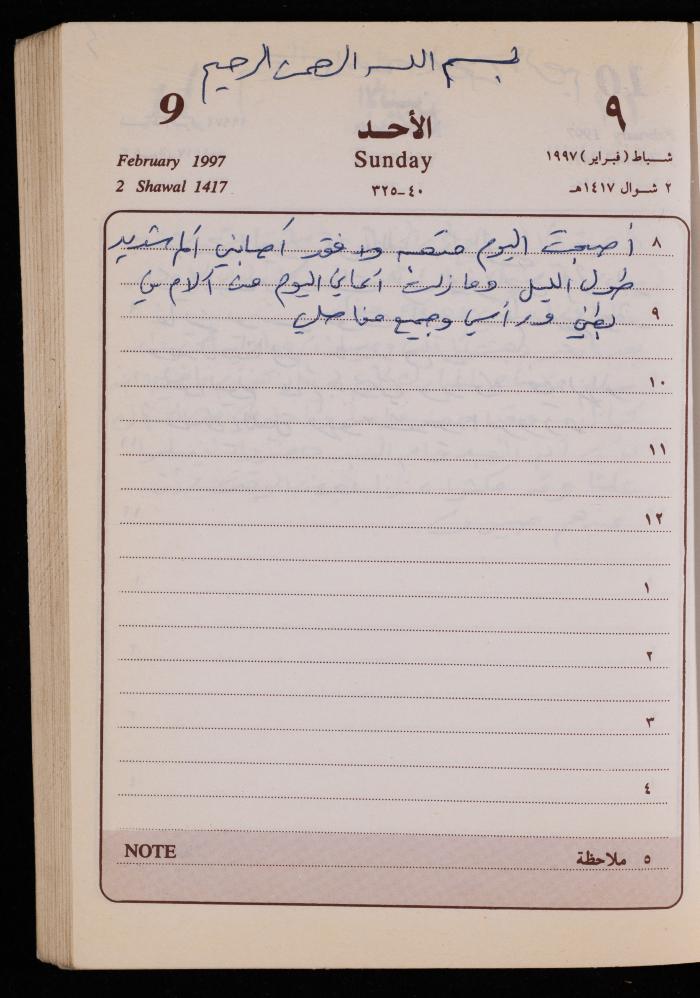 بسم الله الرحمن الرحيم
9
٩
الأحد
February 1997
Sunday
شباط (فبراير) ١٩٩٧
2 Shawal 1417
٤٠-٣٢٥
٢ شوال ١٤١٧هـ
٨ أصبحت اليوم متعبه ولا فقد أصابني ألم شديد
طول الليل وما زلت أعاني اليوم من آلام في
٩ بطني ورأسي وجميع مفاصلي
١٠
١١
١٢
١
٢
٣
٤
NOTE
٥ ملاحظة